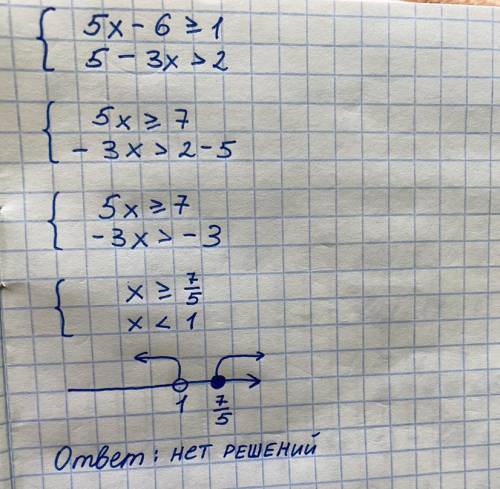 5x - 6 ≥ 1
5 - 3x > 2
5x ≥ 7
- 3x > 2 - 5
5x ≥ 7
-3x > -3
x ≥ 7/5
x < 1
1 7/5
Ответ: нет решений